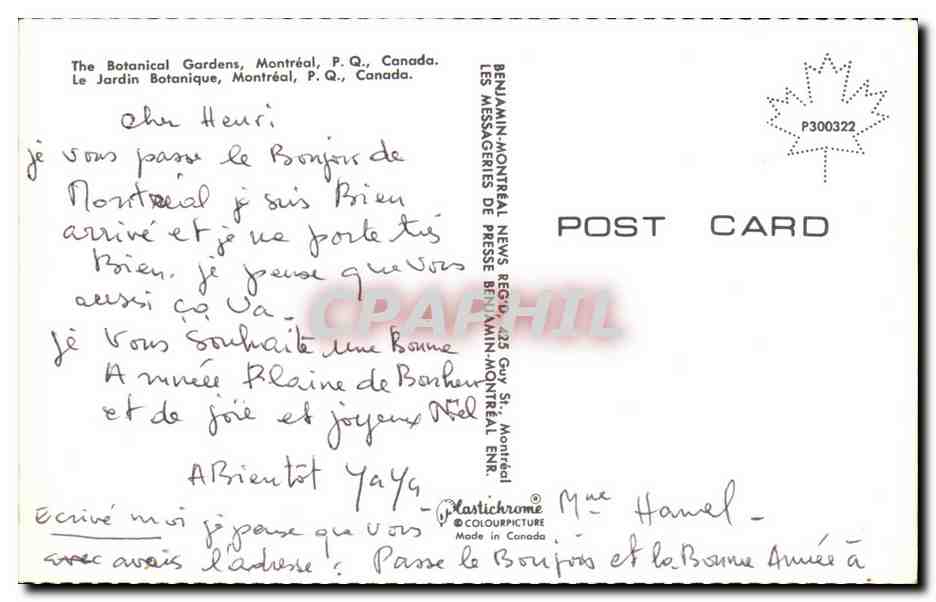 The Botanical Gardens, Montréal, P. Q., Canada.
Le Jardin Botanique, Montréal, P. Q., Canada.
cher Henri
je vous passe le Bonjour de
Montréal je suis Bien
arrivé et je me porte très
Bien. je pense que vous
aussi ça va_
je vous souhaite une Bonne
Année Plaine de Bonheur
et de joïe et joyeux Nöel
A Bientôt YaYa_
Ecrivé moi je pense que vous
avais l'adresse : Passe le Bonjois et la Bonne Année à
Mme Hamel_
BENJAMIN-MONTRÉAL NEWS REG'D, 425 Guy St., Montréal
LES MESSAGERIES DE PRESSE BENJAMIN-MONTRÉAL ENR.
Plastichrome ®
© COLOURPICTURE
Made in Canada
P300322
POST CARD
CPAPHIL